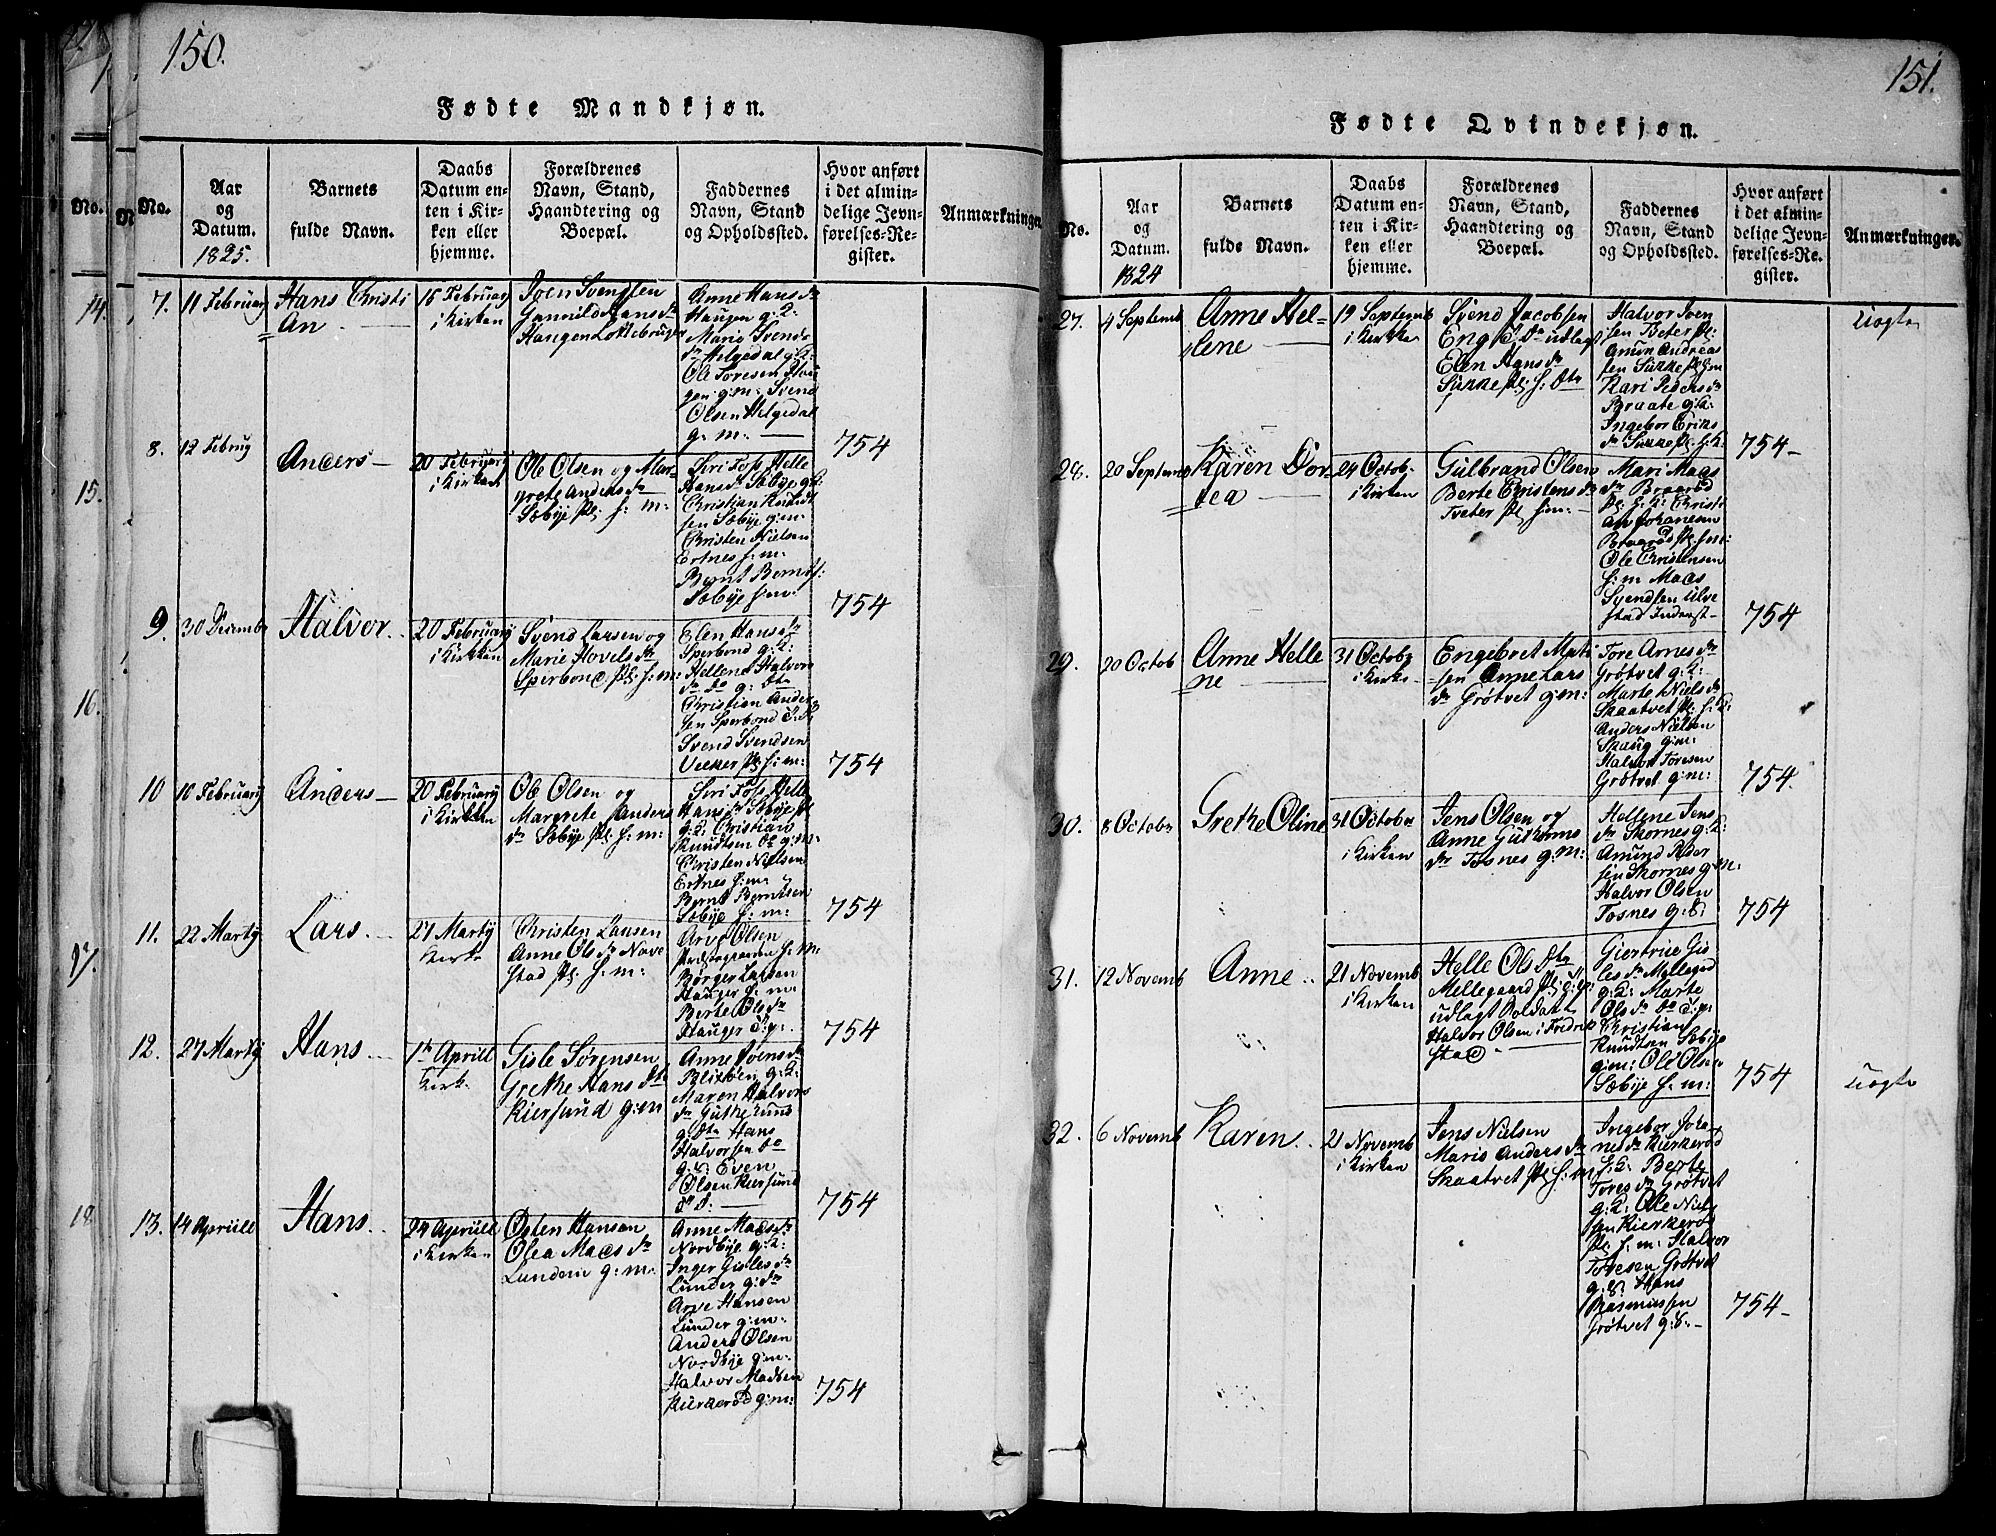 150.
Fødte Mandkjøn.
No.
Aar
og
Datum.
1825.
Barnets
fulde Navn.
Daabs
Datum en-
ten i Kir-
ken eller
hjemme.
Forældrenes
Navn, Stand,
Haandtering og
Boepæl.
Faddernes
Navn, Stand
og Opholdssted.
Hvor anført
i det almin-
delige Jevn-
førelses-Re-
gister.
Anmærkninger
7.
11 Februarij
Hans Christi
An
Februarij
i Kirken
Svendsen
Hans
Anne Hans dr
Haugen g: K:
Marie Svends
dr Helgedal g: K:
Ole Toresen Hau
gen g: m: Svend
Olsen Helgedal
g: m:
754
8.
12 Februg
Anders
20 Februarij
i Kirken
Ole Olsen og Mar-
grete Anders dr
Sæbye pl: h: m:
Siri Helle
Hans dr Sæbye
Christian Knudt
sen Sæbye g: m:
Christen Nielsen
Ertnes h: m:
Bernt Bernts:
Sæbye h: m:
754
9.
30 Decembr
Halvor
20 Februarij
i Kirken
Svend Larsen og
Marie Hovels dr
Sperbond pl: h: m:
Elen Hans dr
Sperbond g: K:
Hellene Halvors
dr do g: dtr
Christian Anders
sen Sperbond
Svend Svendsen
h: m:
754
10
16 Februarij
Anders
20 Februarij
i Kirken
Ole Olsen og
Margrete Anders
dr Sæbye pl: h: m:
Siri Helle
Hans dr Sæbye pl
g: K: Christian
Knudtsen do g: m:
Christen Nielsen
Ertnes h: m:
Bernt Berntsen
Sæbye h: m:
754
11.
22 Martij
Lars
27 Martij
Kirk
Christen Larsen
Anne Ols dr Nave
stad pl: h: m:
Arve Olsen
h: m:
Børger Larsen
Hauger h: m:
Berte Ols dr
Hauger d: p:
754
12.
27 Martij
Hans
1te Aprill
Kirk
Gisle Sørensen
Grethe Hans dtr
Kiersund g: m
Anne Joens dr
g: K:
Maren Halvors
dr
g: dtr Hans
Halvorsen do
g: S: Even
Olsen Kiersund
754
13.
14 Aprill
Hans
24 Aprill
i Kirken
Østen Hansen
Olea Maes dr
Lunden g: m:
Anne Maes dr
Nordbye g: K:
Inger Gisles dr
Lunder g: dr
Arve Hansen
Lunder g: m:
Anders Olsen
Nordbye g: m:
Halvor Madsen
Kirkerød g: m:
754
14.
15.
16.
17.
18
151.
Fødte Qvindekjøn.
No.
Aar
og
Datum.
1824
Barnets
fulde Navn.
Daabs
Datum en-
ten i Kir-
ken eller
hjemme.
Forældrenes
Navn, Stand,
Haandtering og
Boepæl.
Faddernes
Navn, Stand
og Opholdssted.
Hvor anført
i det almin-
delige Jevn-
førelses-Re-
gister.
Anmærkninger.
27.
4 Septemb
Anne Hel-
lene
19 Septemb
i Kirken
Svend Jacobsen
Eng udlagt
Elen Hans dr
Sukke pl: h: dtr
Halvor Joen
sen Tveter pl:
Amun Andreas
sen Sukke pl: h: m
Kari Peders dr
Braate g: K:
Ingebor Eriks
dr Sukke pl: h: K:
754
Uægte
28.
20 Septemb
Karen Dor-
tea
24 Octob
i Kirken
Gulbrand Olsen
Berte Christens dr
Tveter pl: h: m:
Mari Maes
dr Braarød
pl: h: K: Christi
an Johanesen
Braarød pl: h: m:
Ole Christensen
h: m Maes
Svendsen Ulve
stad Inderst
754
29.
20 Octob
Anne Helle
ne
31 Octobr
i Kirke
Engebret Mati
sen Anne Lars
dr Grøtvet g: m:
Tore Arnes dr
Grøtvet g: K:
Marte Niels dr
Skaatvet pl: h: K:
Anders Nielsen
Skaug g: m:
Halvor Toresen
Grøtvet g: m:
754.
30.
8 Octobr
Grethe Oline
31 Octobr
i Kirken
Jens Olsen og
Anne Guthorms
dr Tosnes g: m:
Hellene Jens
dr Skornes g: K:
Amund Peder
sen Skornes g: m:
Halvor Olsen
Tosnes g: S:
754
31.
12 Novemb
Anne
21 Novemb
i Kirken
Helle Ols dtr
Mellegaard pl:
udlagt Soldat
Halvor Olsen i Fredrik
stad
Giertrue Gis
les dr Mellegrd
g: K: Marte
Ols dr do d: p:
Christian
Knudtsen Sæbye
g: m: Ole Olsen
Sæbye h: m:
754
Uægte
32.
6 Novemb
Karen
21 Novemb
i Kirken
Jens Nielsen
Maris Anders dr
Skaatvet pl: h: m
Ingebor Joha
nes dr Kirkerød
h: K: Berte
Tores dr Grøtvet
g: K: Ole Niel
sen Kirkerød
pl: h: m: Halvor
Toresen Grøtvet
g: S: Hans
Rasmussen
Grøtvet g: S:
754